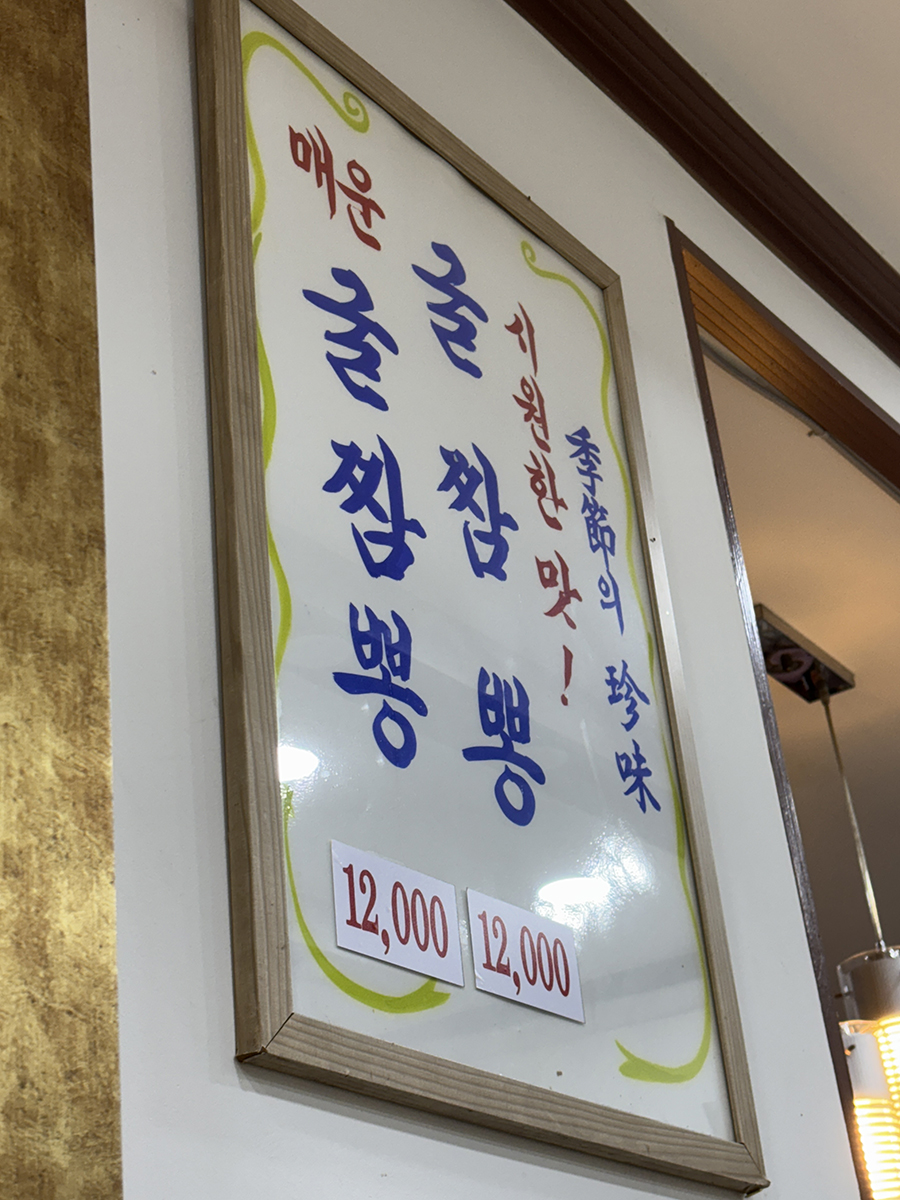 季節의 珍味
시원한 맛!
굴 짬 뽕
매운
굴짬뽕
12,000
12,000